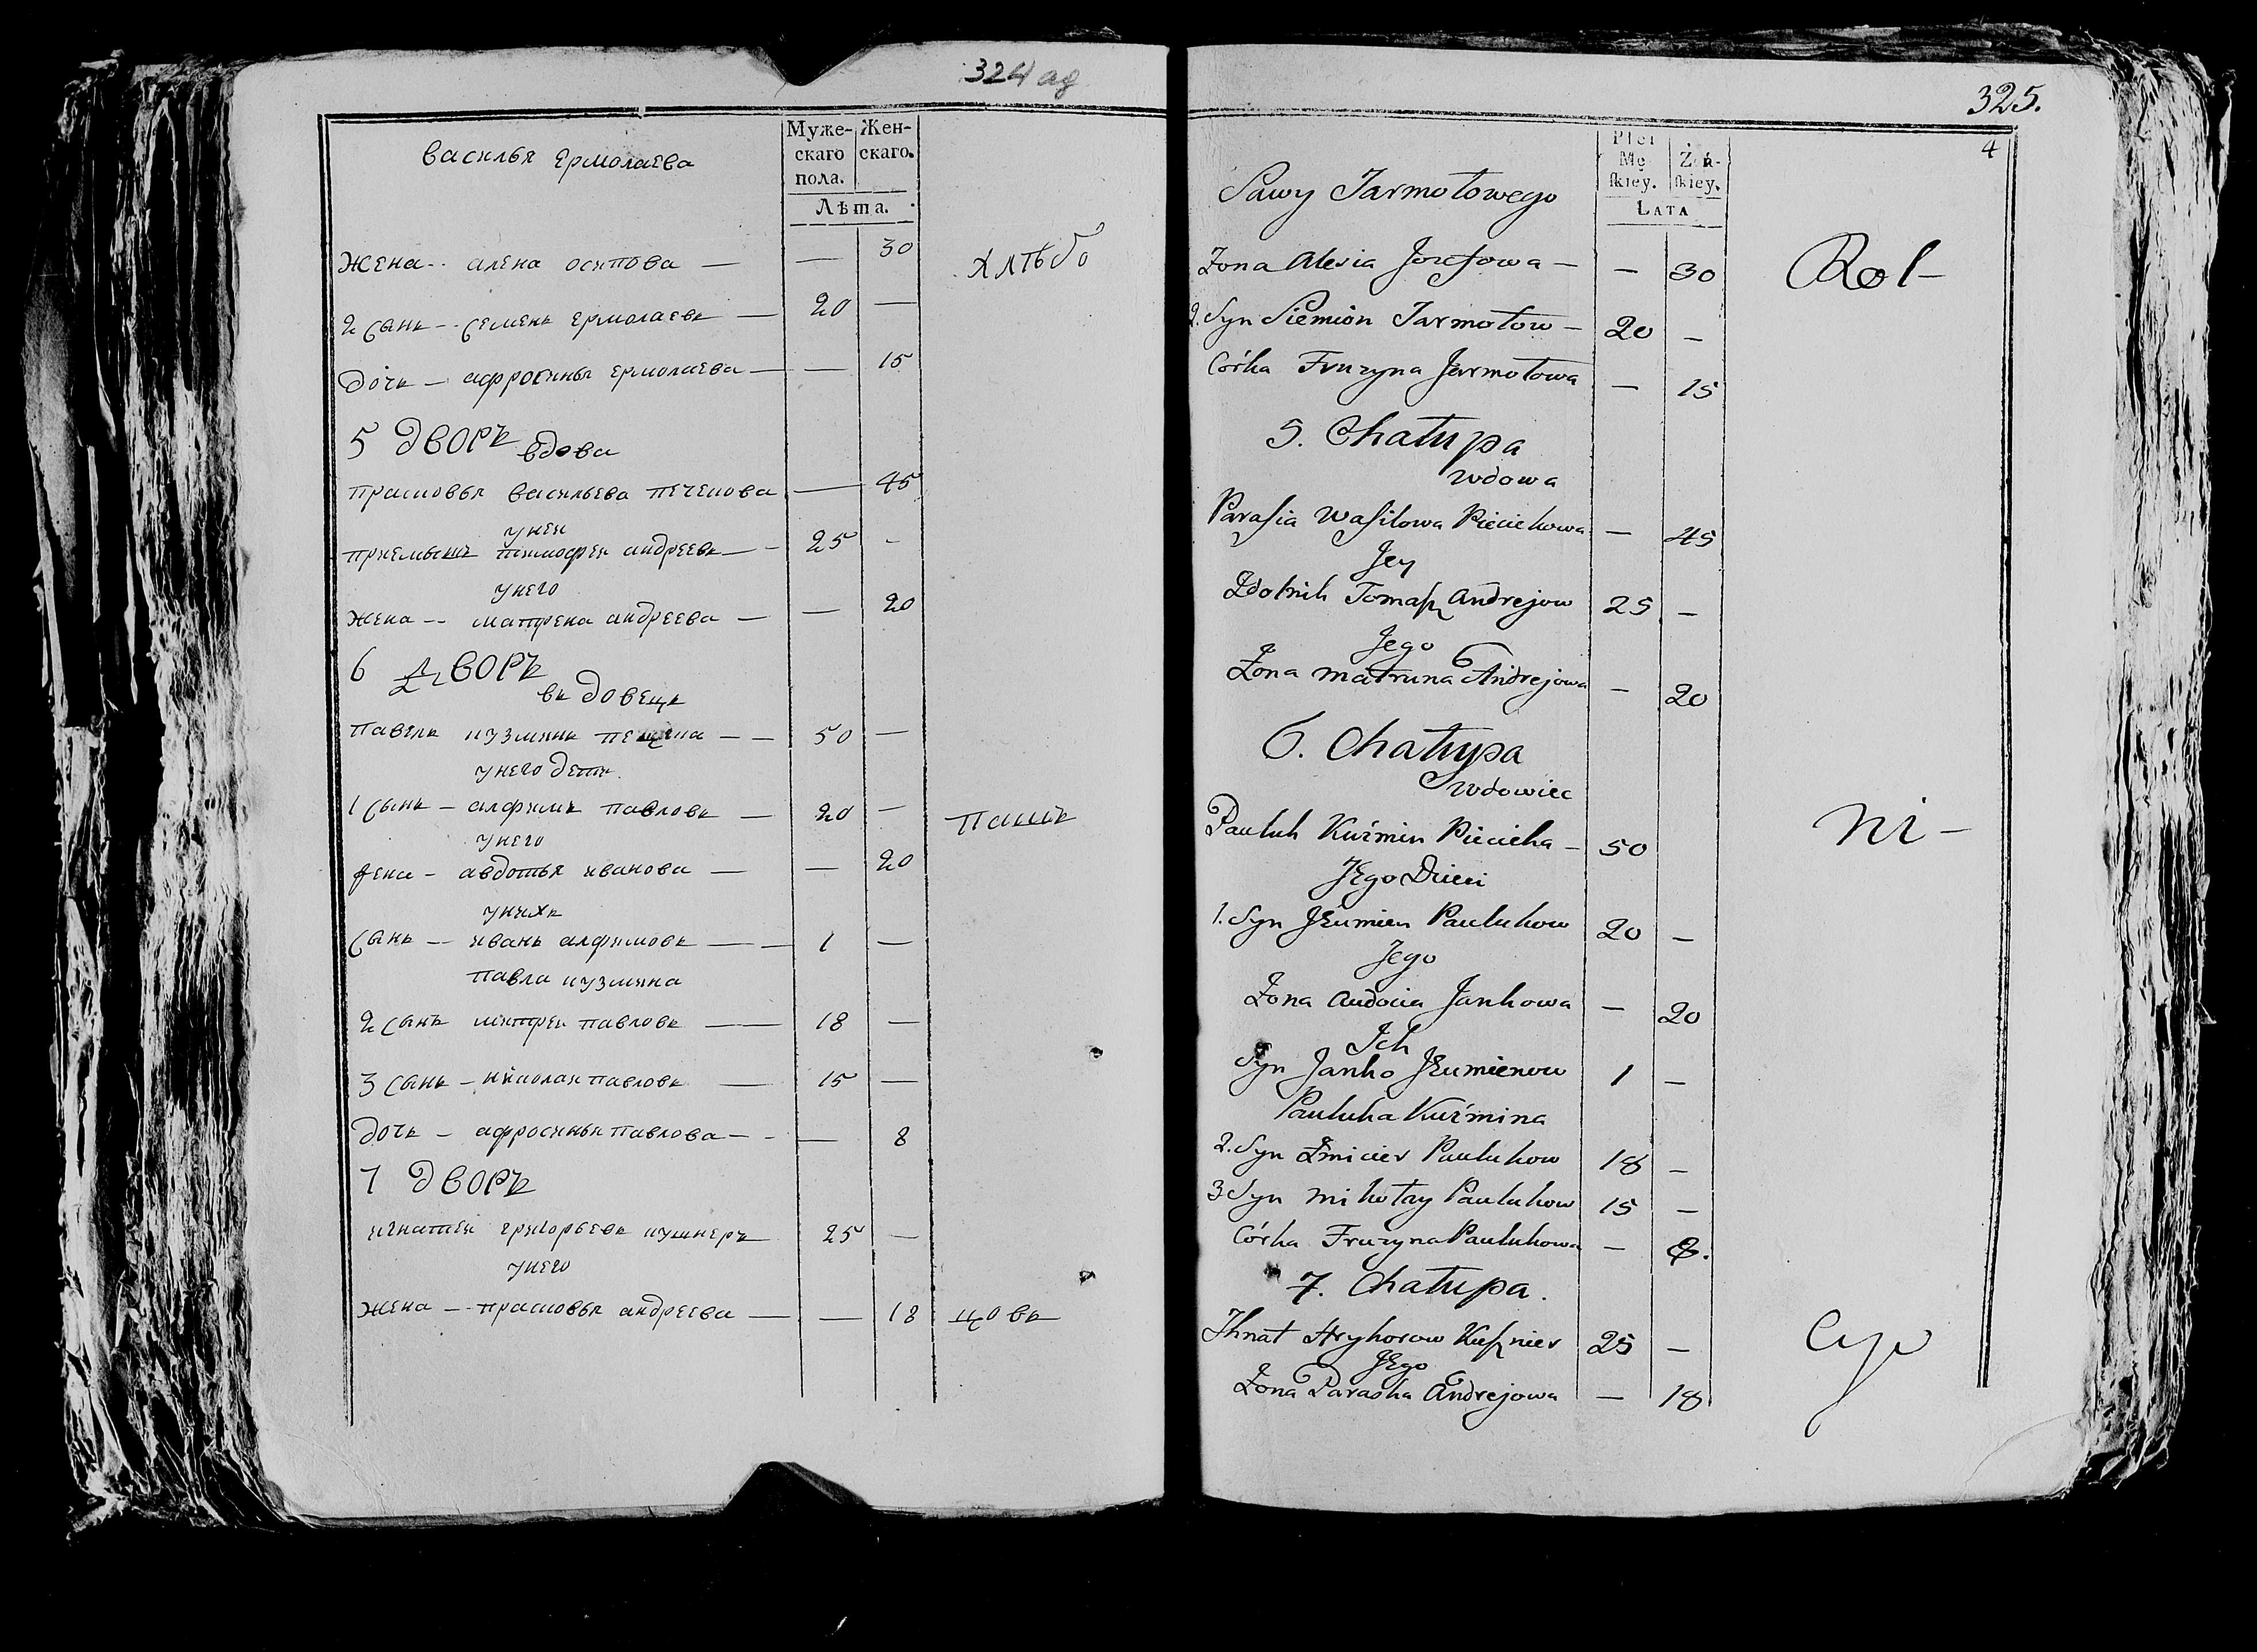 324 об
Муже-
скаго
пола.
Жен-
скаго.
Лѣта.
василья ермолаева
жена -- алена осипова — — 30
хлѣбо
2 сынъ -- семенъ ермолаевъ — 20 —
дочь — афросинья ермолаева — — 15
5 дворъ
вдова
прасковья васильева печекова — 45
у неи
приемышъ тимофеи андреевъ — - 25 -
у него
жена -- матрена андреева — — 20
6 дворъ
вдовецъ
павелъ кузминъ — — 50 —
у него дети
1 сынъ — алфимъ павловъ — 20 —
пашъ
у него
жена - авдотья иванова — — 20
у нихъ
сынъ -- иванъ алфимовъ — — 1 —
павла кузмина
2 сынъ павловъ — — 18 —
3 сынъ — николаи павловъ — 15 —
дочь — афросинья павлова — - — 8
7 дворъ
игнатеи григорьевъ кушнеръ 25 —
у него
жена -- прасковья андреева — — 18
цовъ
325.
4
Płci
Mę-
ſkiey.
Żeń-
ſkiey.
Lata
Sawy Jarmołowego
Żona Alesia Jozefowa — — 30
Rol-
2. Syn Siemion Jarmołow — 20 —
Córka Fruzyna Jarmołowa — 15
5. Chałupa
wdowa
Parasia Wasilowa Pieciekowa — 45
Jey
Zdolnik Tomasz Andrejow 25 —
Jego
Żona Matruna Andrejowa — 20
6. Chałupa
Wdowiec
Pauluk Kuźmin Piecieka — 50
ni-
Jego Dzieci
1. Syn Paulukow 20 —
Jego
Żona Audocia Jankowa — 20
Ich
Syn Janko 1 —
Pauluka Kuźmina
2. Syn Żmicier Paulukow 18 —
3 Syn Mikołay Paulukow 15 —
Córka Fruzyna Paulukowa — 8.
7. Chałupa.
Ihnat Hryhorow Kusznier 25 —
cy
Jego
Żona Paraska Andrejowa — 18